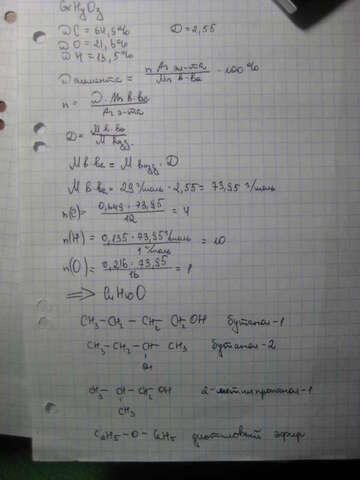 CxHyOz
ω C = 64,9%
D = 2,55
ω O = 21,6%
ω H = 13,5%
ω элемента = n Ar эл-та / Mr в-ва · 100%
n = ω · Mr в-ва / Ar э-та
D = M в-ва / M возд.
M в-ва = M возд · D
M в-ва = 29 г/моль · 2,55 = 73,95 г/моль
n(C) = 0,649 · 73,95 / 12 = 4
n(H) = 0,135 · 73,95 г/моль / 1 г/моль = 10
n(O) = 0,216 · 73,95 / 16 = 1
⇒ C4H10O
CH3-CH2-CH2-CH2OH бутанол-1
CH3-CH2-CH-CH3 бутанол-2
OH
CH3-CH-CH2-OH 2-метилпропанол-1
CH3
C2H5-O-C2H5 диэтиловый эфир